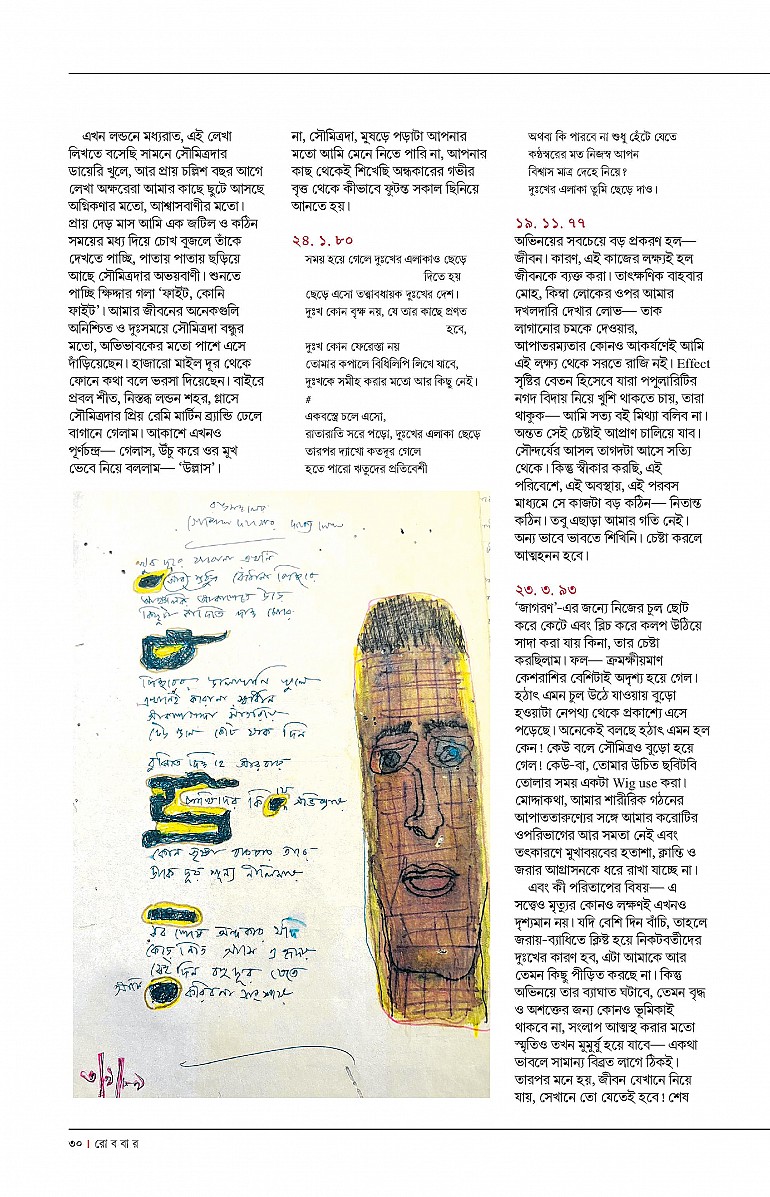 এখন লন্ডনে মধ্যরাত, এই লেখা
লিখতে বসেছি সামনে সৌমিত্রদার
ডায়েরি খুলে, আর প্রায় চল্লিশ বছর আগে
লেখা অক্ষরেরা আমার কাছে ছুটে আসছে
অগ্নিকণার মতো, আশ্বাসবাণীর মতো।
প্রায় দেড় মাস আমি এক জটিল ও কঠিন
সময়ের মধ্য দিয়ে চোখ বুজলে তাঁকে
দেখতে পাচ্ছি, পাতায় পাতায় ছড়িয়ে
আছে সৌমিত্রদার অভয়বাণী। শুনতে
পাচ্ছি ক্ষিদ্দার গলা ‘ফাইট, কোনি
ফাইট’। আমার জীবনের অনেকগুলি
অনিশ্চিত ও দুঃসময়ে সৌমিত্রদা বন্ধুর
মতো, অভিভাবকের মতো পাশে এসে
দাঁড়িয়েছেন। হাজারো মাইল দূর থেকে
ফোনে কথা বলে ভরসা দিয়েছেন। বাইরে
প্রবল শীত, নিস্তব্ধ লন্ডন শহর, গ্লাসে
সৌমিত্রদার প্রিয় রেমি মার্টিন ব্র্যান্ডি ঢেলে
বাগানে গেলাম। আকাশে এখনও
পূর্ণচন্দ্র— গেলাস, উঁচু করে ওর মুখ
ভেবে নিয়ে বললাম— ‘উল্লাস’।
না, সৌমিত্রদা, মুষড়ে পড়াটা আপনার
মতো আমি মেনে নিতে পারি না, আপনার
কাছ থেকেই শিখেছি অন্ধকারের গভীর
বৃত্ত থেকে কীভাবে ফুটন্ত সকাল ছিনিয়ে
আনতে হয়।
২৪. ১. ৮০
সময় হয়ে গেলে দুঃখের এলাকাও ছেড়ে
দিতে হয়
ছেড়ে এসো তত্ত্বাবধায়ক দুঃখের দেশ।
দুঃখ কোন বৃক্ষ নয়, যে তার কাছে প্রণত
হবে,
দুঃখ কোন ফেরেস্তা নয়
তোমার কপালে বিধিলিপি লিখে যাবে,
দুঃখকে সমীহ করার মতো আর কিছু নেই।
#
একবস্ত্রে চলে এসো,
রাতারাতি সরে পড়ো, দুঃখের এলাকা ছেড়ে
তারপর দ্যাখো কতদূর গেলে
হতে পারো ঋতুদের প্রতিবেশী
অথবা কি পারবে না শুধু হেঁটে যেতে
কণ্ঠস্বরের মত নিজস্ব আপন
বিশ্বাস মাত্র দেহে নিয়ে?
দুঃখের এলাকা তুমি ছেড়ে দাও।
১৯. ১১. ৭৭
অভিনয়ের সবচেয়ে বড় প্রকরণ হল—
জীবন। কারণ, এই কাজের লক্ষ্যই হল
জীবনকে ব্যক্ত করা। তাৎক্ষণিক বাহবার
মোহ, কিম্বা লোকের ওপর আমার
দখলদারি দেখার লোভ— তাক
লাগানোর চমকে দেওয়ার,
আপাতরম্যতার কোনও আকর্ষণেই আমি
এই লক্ষ্য থেকে সরতে রাজি নই। Effect
সৃষ্টির বেতন হিসেবে যারা পপুলারিটির
নগদ বিদায় নিয়ে খুশি থাকতে চায়, তারা
থাকুক— আমি সত্য বই মিথ্যা বলিব না।
অন্তত সেই চেষ্টাই আপ্রাণ চালিয়ে যাব।
সৌন্দর্যের আসল তাগদটা আসে সত্যি
থেকে। কিন্তু স্বীকার করছি, এই
পরিবেশে, এই অবস্থায়, এই পরবস
মাধ্যমে সে কাজটা বড় কঠিন— নিতান্ত
কঠিন। তবু এছাড়া আমার গতি নেই।
অন্য ভাবে ভাবতে শিখিনি। চেষ্টা করলে
আত্মহনন হবে।
২৩. ৩. ৯৩
‘জাগরণ’-এর জন্যে নিজের চুল ছোট
করে কেটে এবং ব্লিচ করে কলপ উঠিয়ে
সাদা করা যায় কিনা, তার চেষ্টা
করছিলাম। ফল— ক্রমক্ষীয়মাণ
কেশরাশির বেশিটাই অদৃশ্য হয়ে গেল।
হঠাৎ এমন চুল উঠে যাওয়ায় বুড়ো
হওয়াটা নেপথ্য থেকে প্রকাশ্যে এসে
পড়েছে। অনেকেই বলছে হঠাৎ এমন হল
কেন! কেউ বলে সৌমিত্রও বুড়ো হয়ে
গেল! কেউ-বা, তোমার উচিত ছবিটবি
তোলার সময় একটা Wig use করা।
মোদ্দাকথা, আমার শারীরিক গঠনের
আপাততারুণ্যের সঙ্গে আমার করোটির
ওপরিভাগের আর সমতা নেই এবং
তৎকারণে মুখাবয়বের হতাশা, ক্লান্তি ও
জরার আগ্রাসনকে ধরে রাখা যাচ্ছে না।
এবং কী পরিতাপের বিষয়— এ
সত্ত্বেও মৃত্যুর কোনও লক্ষণই এখনও
দৃশ্যমান নয়। যদি বেশি দিন বাঁচি, তাহলে
জরায়-ব্যাধিতে ক্লিষ্ট হয়ে নিকটবর্তীদের
দুঃখের কারণ হব, এটা আমাকে আর
তেমন কিছু পীড়িত করছে না। কিন্তু
অভিনয়ে তার ব্যাঘাত ঘটাবে, তেমন বৃদ্ধ
ও অশক্তের জন্য কোনও ভূমিকাই
থাকবে না, সংলাপ আত্মস্থ করার মতো
স্মৃতিও তখন মুমূর্ষু হয়ে যাবে— একথা
ভাবলে সামান্য বিব্রত লাগে ঠিকই।
তারপর মনে হয়, জীবন যেখানে নিয়ে
যায়, সেখানে তো যেতেই হবে! শেষ
৩০ | রোববার